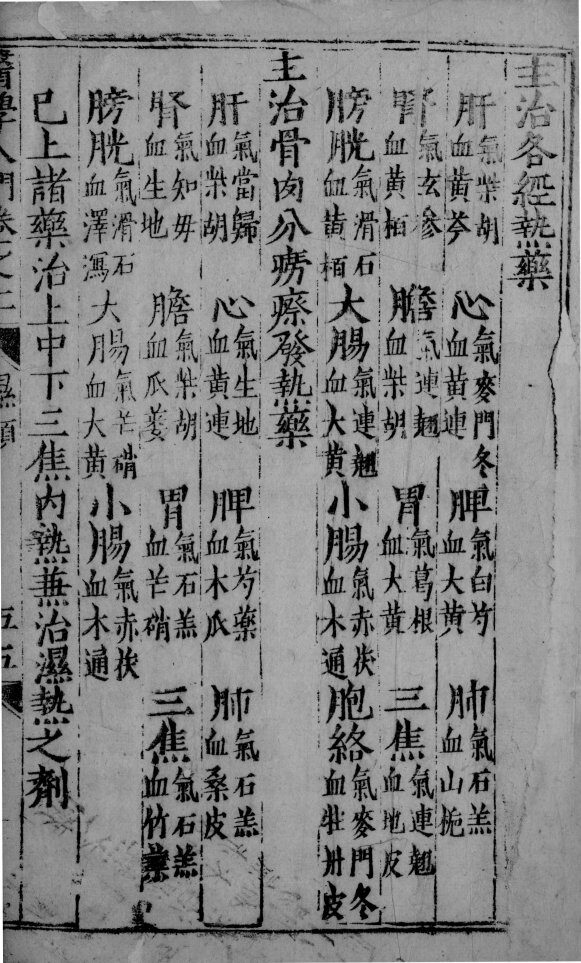 主治各經熱藥
肝氣柴胡血黃芩 心氣麥門冬血黃連 脾氣白芍血大黃 肺氣石羔血山梔
腎氣玄參血黃栢 膽氣連翹血柴胡 胃氣葛根血大黃 三焦氣連翹血地皮
膀胱氣滑石血黃栢 大腸氣連翹血大黃 小腸氣赤茯血木通 胞絡氣麥門冬血牡丹皮
主治骨肉分癆瘵發熱藥
肝氣當歸血柴胡 心氣生地血黃連 脾氣芍藥血木瓜 肺氣石羔血桑皮
腎氣知毋血生地 膽氣柴胡血瓜蔞 胃氣石羔血芒硝 三焦氣石羔血竹葉
膀胱氣滑石血澤瀉 大腸氣芒硝血大黃 小腸氣赤茯血木通
已上諸藥治上中下三焦內熱兼治濕熱之劑
醫學入門卷之二 濕類 五五